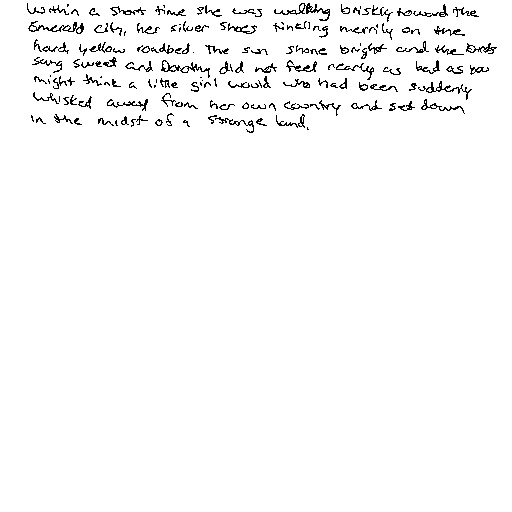 Within a short time she was walking briskly toward the
Emerald City, her silver shoes tinkling merrily on the
hard, yellow roadbed. The sun shone bright and the birds
sang sweet and Dorothy did not feel nearly as bad as you
might think a little girl would who had been suddenly
whisked away from her own country and set down
in the midst of a strange land.